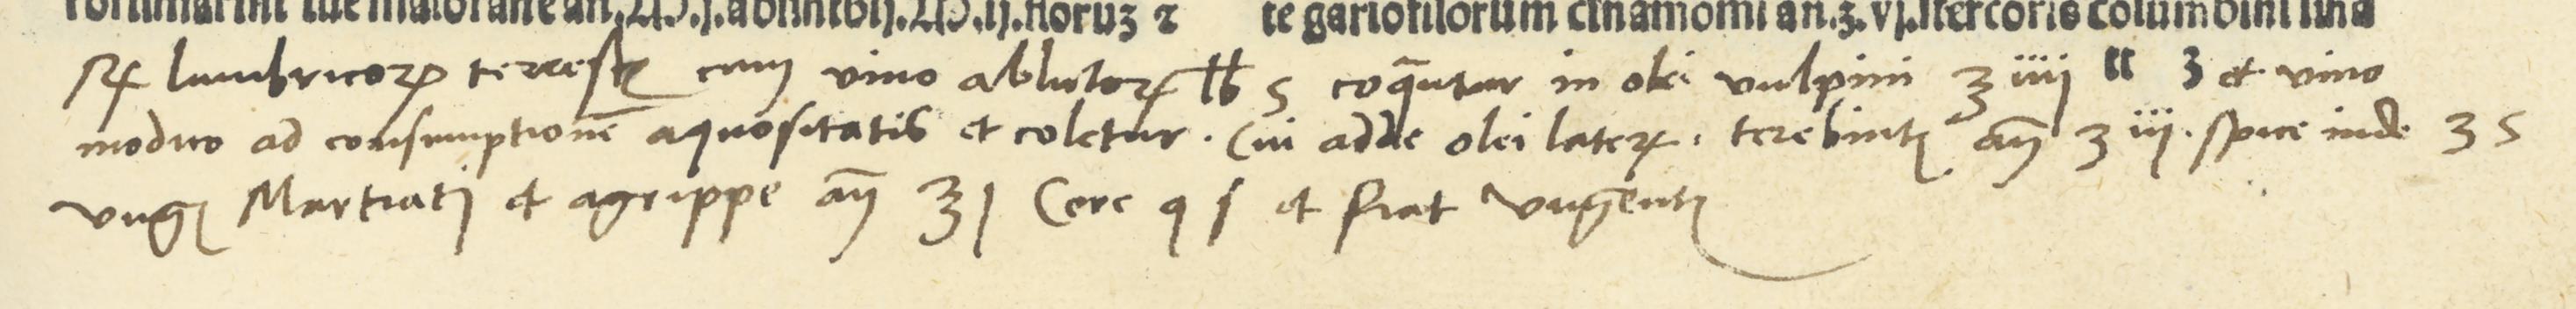 rorismarini siue maiorane an. M. j. absinthij. M. ij. floruꝫ ⁊ te gariofilorum cinamomi an. ʒ. vj. stercoris columbini
℞ lumbricoꝝ terrestꝝ cum vino ablutoꝝ ℔ s coqᷓntur in olei vulpini ℥ iiij et vino
modico ad consumptionē aquositatis et coletur. Cui adde olei lateꝝ. terebintꝭ añ ʒ iij. spice inde ʒ s
vngꝭ Martiatj et agrippe añ ℥ j Cere q s et fiat vngēentꝭ